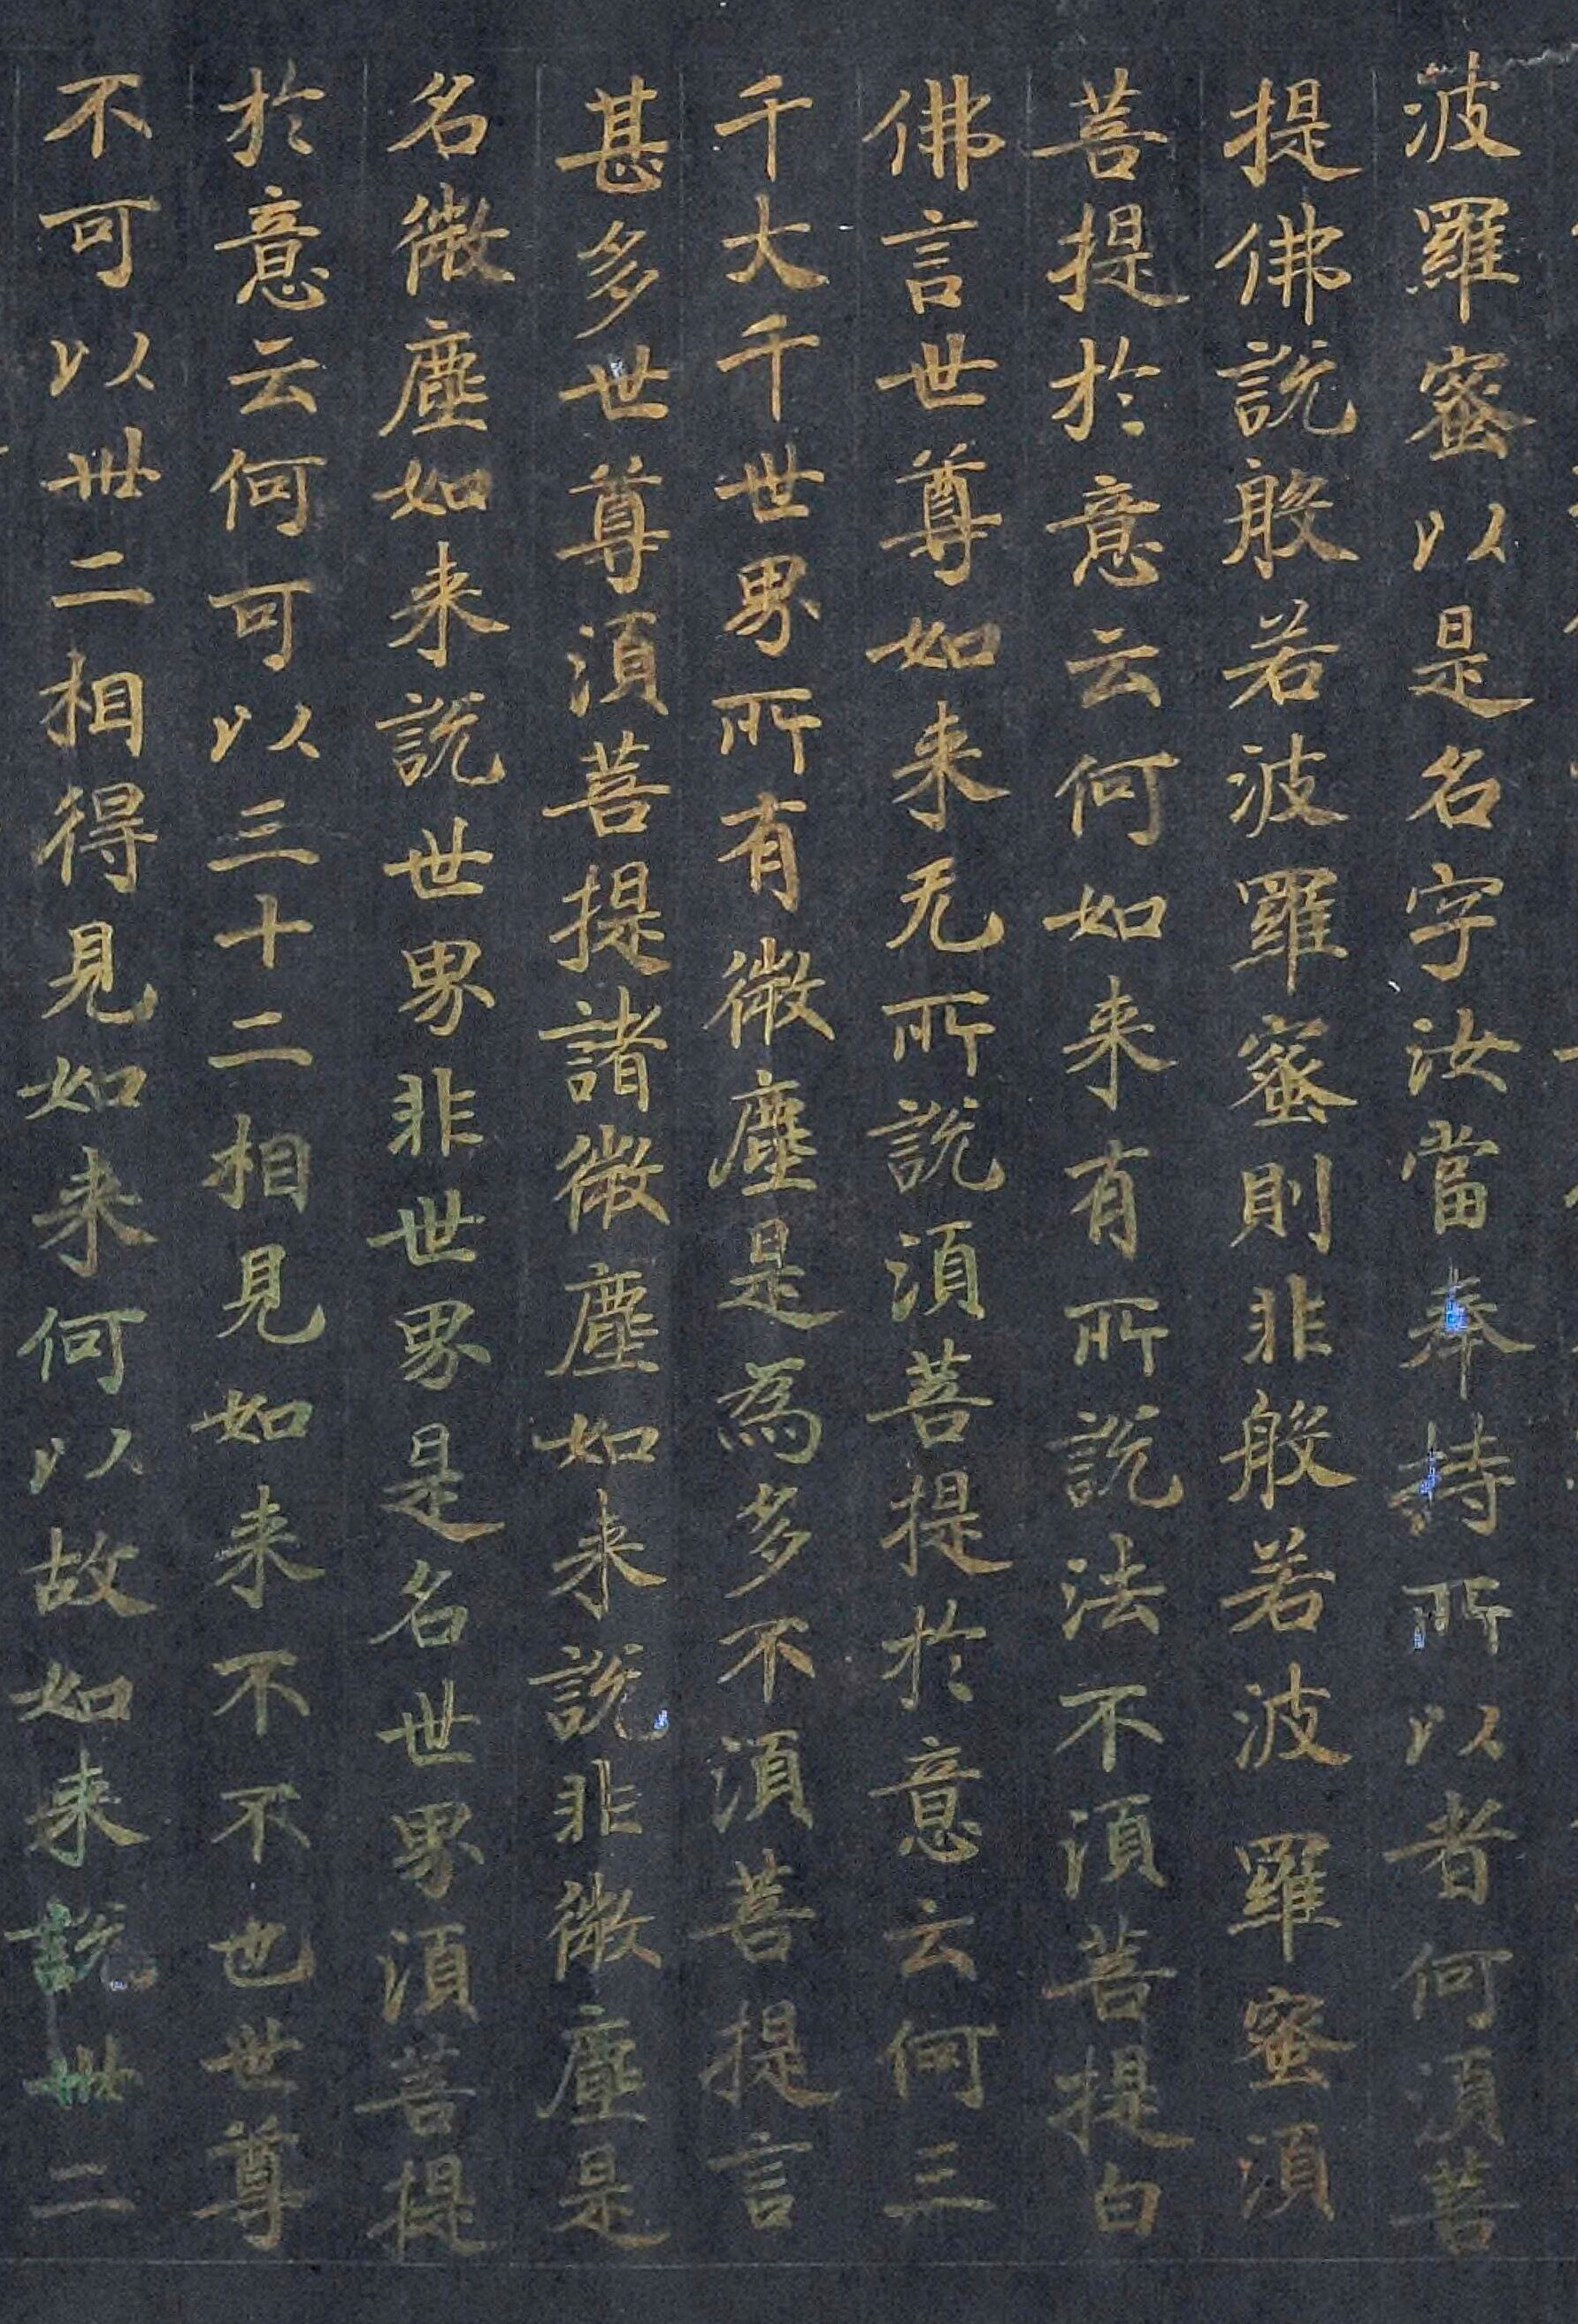 波羅蜜以是名字汝當奉持所以者何湏菩
提佛說般若波羅蜜則非般若波羅蜜湏
菩提於意云何如来有所說法不湏菩提白
佛言世尊如来无所說湏菩提於意云何三
千大千世界所有微塵是為多不湏菩提言
甚多世尊湏菩提諸微塵如来說非微塵是
名微塵如来說世界非世界是名世界湏菩提
於意云何可以三十二相見如来不不也世尊
不可以丗二相得見如来何以故如来說丗二